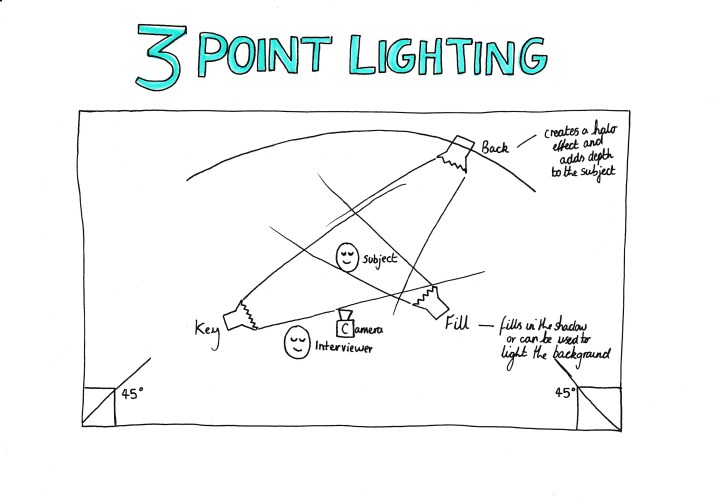 3 POINT LIGHTING
Back
creates a halo
effect and
adds depth
to the subject
Subject
Key
Camera
Interviewer
Fill
fills in the shadow
or can be used to
light the background
45°
45°